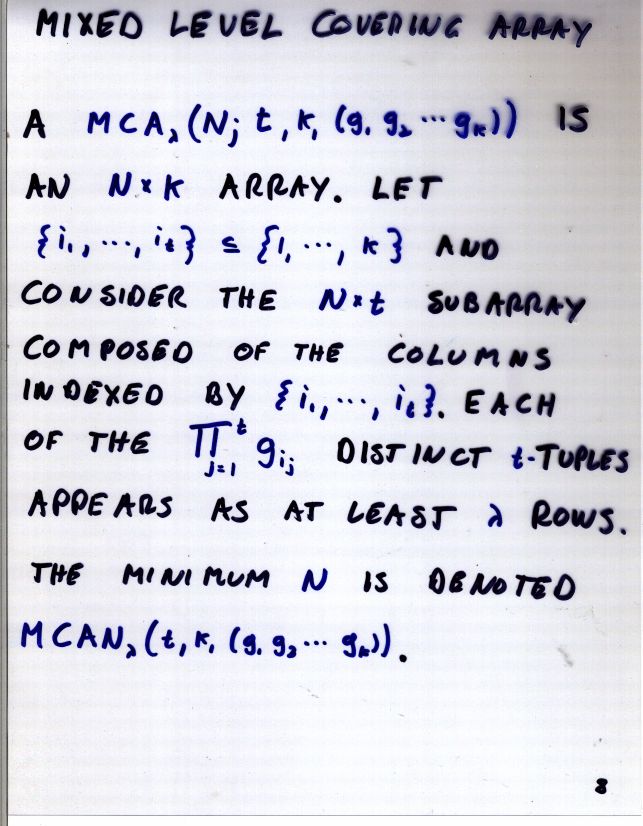 MIXED LEVEL COVERING ARRAY
A MCA_λ(N; t, k, (g₁ g₂ ⋯ gₖ)) IS
AN N×K ARRAY. LET
{i₁, ⋯, iₜ} ⊆ {1, ⋯, k} AND
CONSIDER THE N×t SUBARRAY
COMPOSED OF THE COLUMNS
INDEXED BY {i₁, ⋯, iₜ}. EACH
OF THE ∏ⱼ₌₁ᵗ g_{i_j} DISTINCT t-TUPLES
APPEARS AS AT LEAST λ ROWS.
THE MINIMUM N IS DENOTED
MCAN_λ(t, k, (g₁ g₂ ⋯ gₖ)).
8